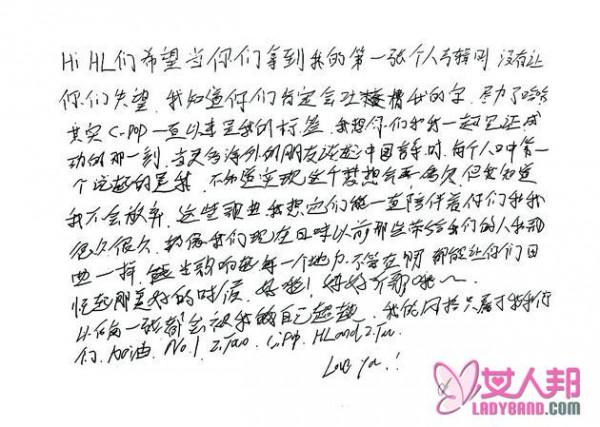 Hi HL们希望当你们拿到我的第一张个人专辑时 没有让
你们失望. 我知道你们肯定会吐槽我的字. 尽力了哈哈
其实 C-POP 一直以来是我的标签. 我想你们和我一起见证成
功的那一刻. 当更多海外的朋友谈起中国音乐时. 每个人口中第一
个说起的是我. 不知道实现这个梦想会要多久. 但要知道
我不会放弃. 这些歌曲我想它们能一直陪伴着你们和我
很久很久. 就像我们现在回味以前那些带给我们的人和歌
曲一样. 能生动响起每一个地方. 不管在哪 都能让你们回
忆起那美好的时候. 好啦! 好好不聊哦～
以后每一张都会被我的自己超越.
们. 加油. No.1 Z.Tao. C-POP. HL and Z.Tao
Love You!!
女人邦
LADYBAND.COM